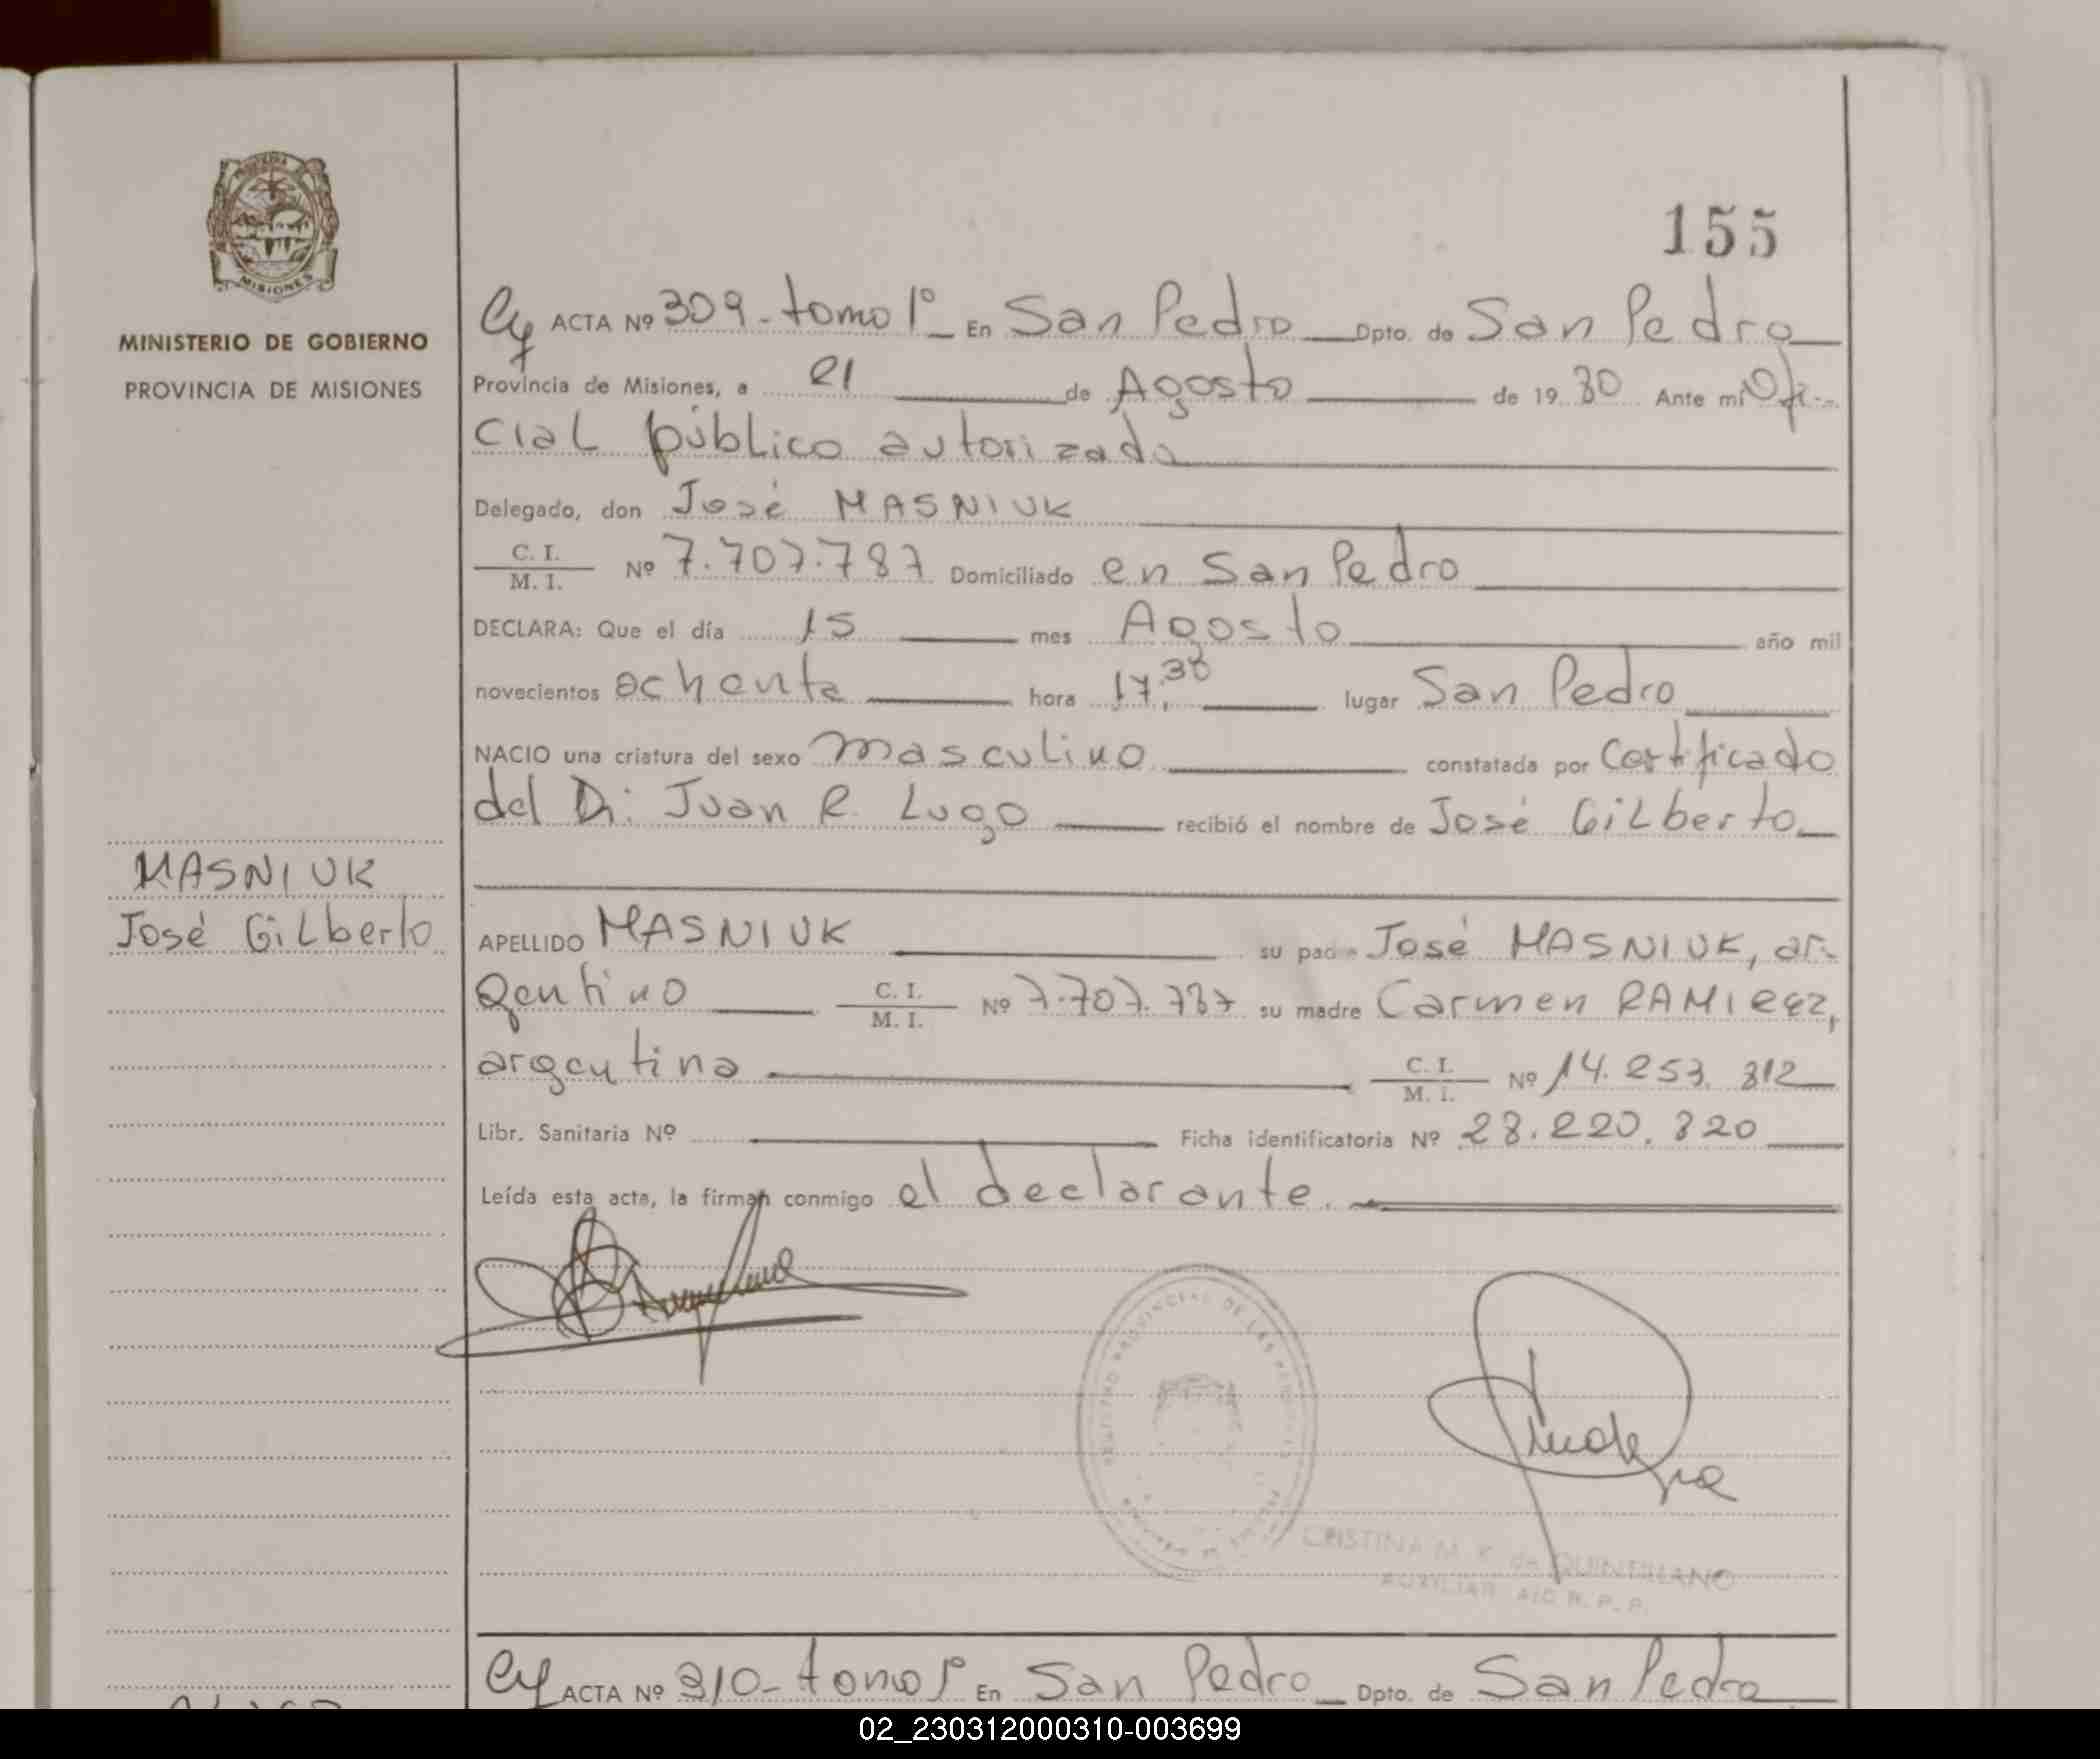 155
MISIONES
MINISTERIO DE GOBIERNO
PROVINCIA DE MISIONES
MASNIUK
José Gilberto
ACTA Nº 309 - tomo 1º En San Pedro Dpto. de San Pedro
Provincia de Misiones, a 21 de Agosto de 19 80 Ante mi Ofi-
cial público autorizado
Delegado, don José MASNIUK
C. I.
M. I. Nº 7.707.787 Domiciliado en San Pedro
DECLARA: Que el día 15 mes Agosto año mil
novecientos ochenta hora 17,30 lugar San Pedro
NACIO una criatura del sexo masculino constatada por Certificado
del Dr. Juan R. Lugo recibió el nombre de José Gilberto
APELLIDO MASNIUK su padre José MASNIUK, ar-
gentino C. I. M. I. Nº 7.707.787 su madre Carmen RAMIREZ,
argentina C. I. M. I. Nº 14.253.812
Libr. Sanitaria Nº Ficha identificatoria Nº 28.220.820
Leída esta acta, la firman conmigo el declarante.
PROVINCIAL DE LAS
CRISTINA M. K. de QUINTILLANO
AUXILIAR A/C R. P. P.
ACTA Nº 310 - tomo 1º En San Pedro Dpto. de San Pedro
02_230312000310-003699